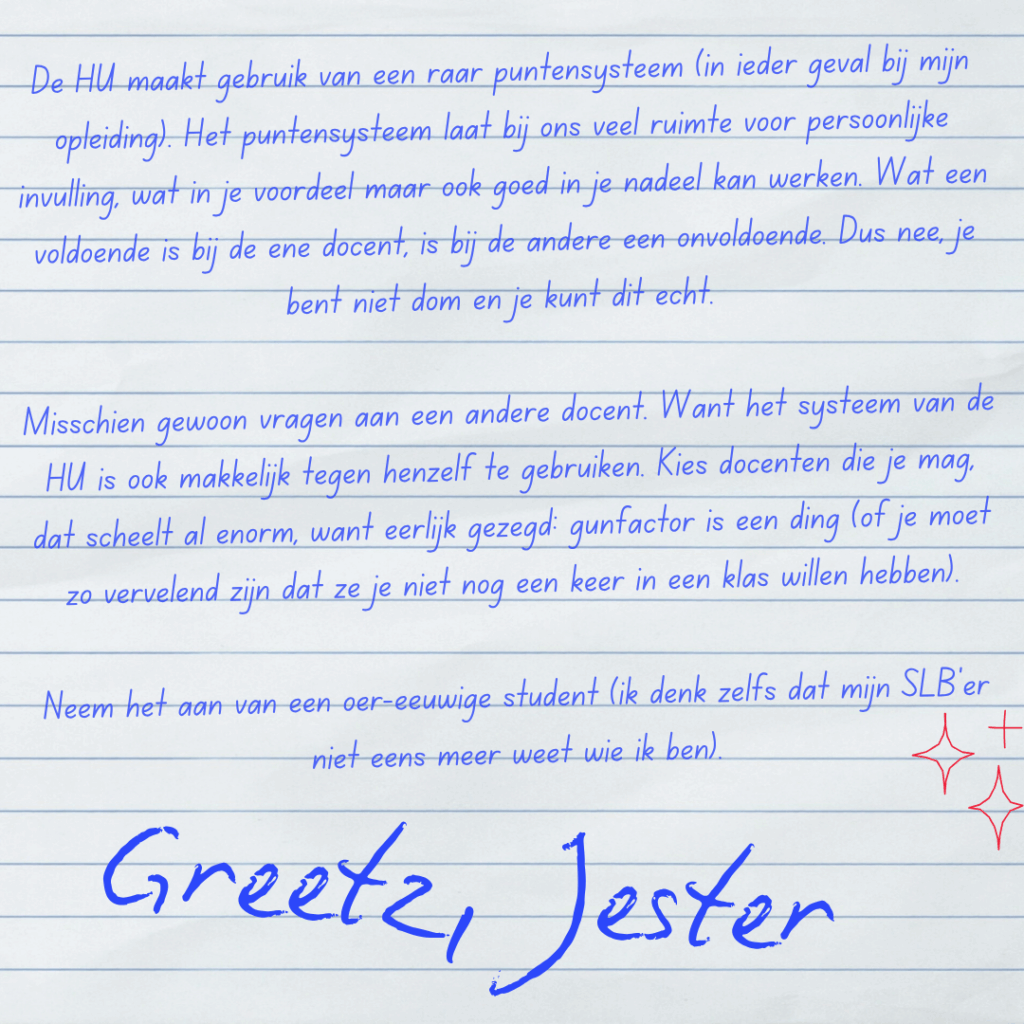 De HU maakt gebruik van een raar puntensysteem (in ieder geval bij mijn
opleiding). Het puntensysteem laat bij ons veel ruimte voor persoonlijke
invulling, wat in je voordeel maar ook goed in je nadeel kan werken. Wat een
voldoende is bij de ene docent, is bij de andere een onvoldoende. Dus nee, je
bent niet dom en je kunt dit echt.
Misschien gewoon vragen aan een andere docent. Want het systeem van de
HU is ook makkelijk tegen henzelf te gebruiken. Kies docenten die je mag,
dat scheelt al enorm, want eerlijk gezegd: gunfactor is een ding (of je moet
zo vervelend zijn dat ze je niet nog een keer in een klas willen hebben).
Neem het aan van een oer-eeuwige student (ik denk zelfs dat mijn SLB'er
niet eens meer weet wie ik ben).
Greetz, Jester